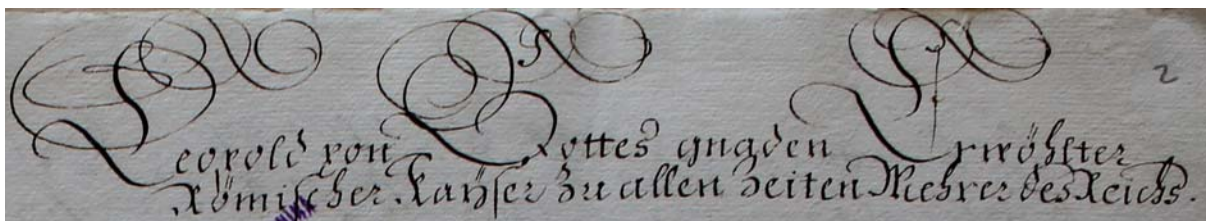 Leopold von Gottes gnaden Erwöhlter
Römischer Kayser zu allen Zeiten Mehrer des Reichs.
2